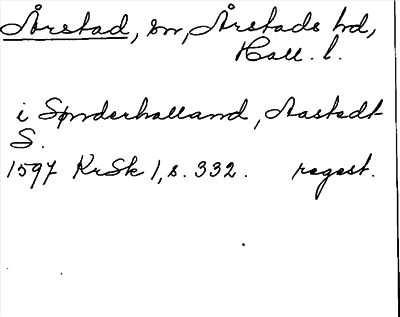 Årstad, sn, Årstads hd,
Hall. l.
i Sønderhalland, Aastedt
S.
1597 KrSk 1, s. 332. regest.